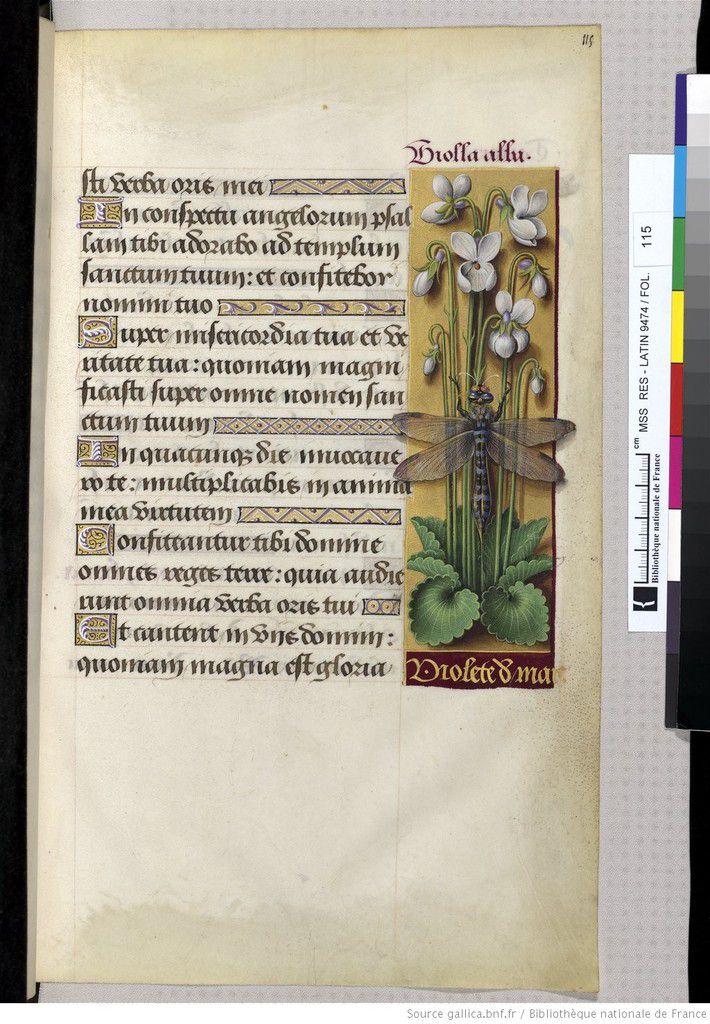 115
Violla alba.
sti verba oris mei
In conspectu angelorum psal
lam tibi adorabo ad templum
sanctum tuum: et confitebor
nomini tuo
Super misericordia tua et ve
ritate tua: quoniam magni
ficasti super omne nomen san
ctum tuum
In quacunq; die invocave
ro te: multiplicabis in anima
mea virtutem
Confiteantur tibi domine
omnes reges terre: quia audie
runt omnia verba oris tui
Et cantent in viis domini:
quoniam magna est gloria
Violete d mar
115
MSS RES - LATIN 9474 / FOL.
cm
Bibliothèque nationale de France
Source gallica.bnf.fr / Bibliothèque nationale de France